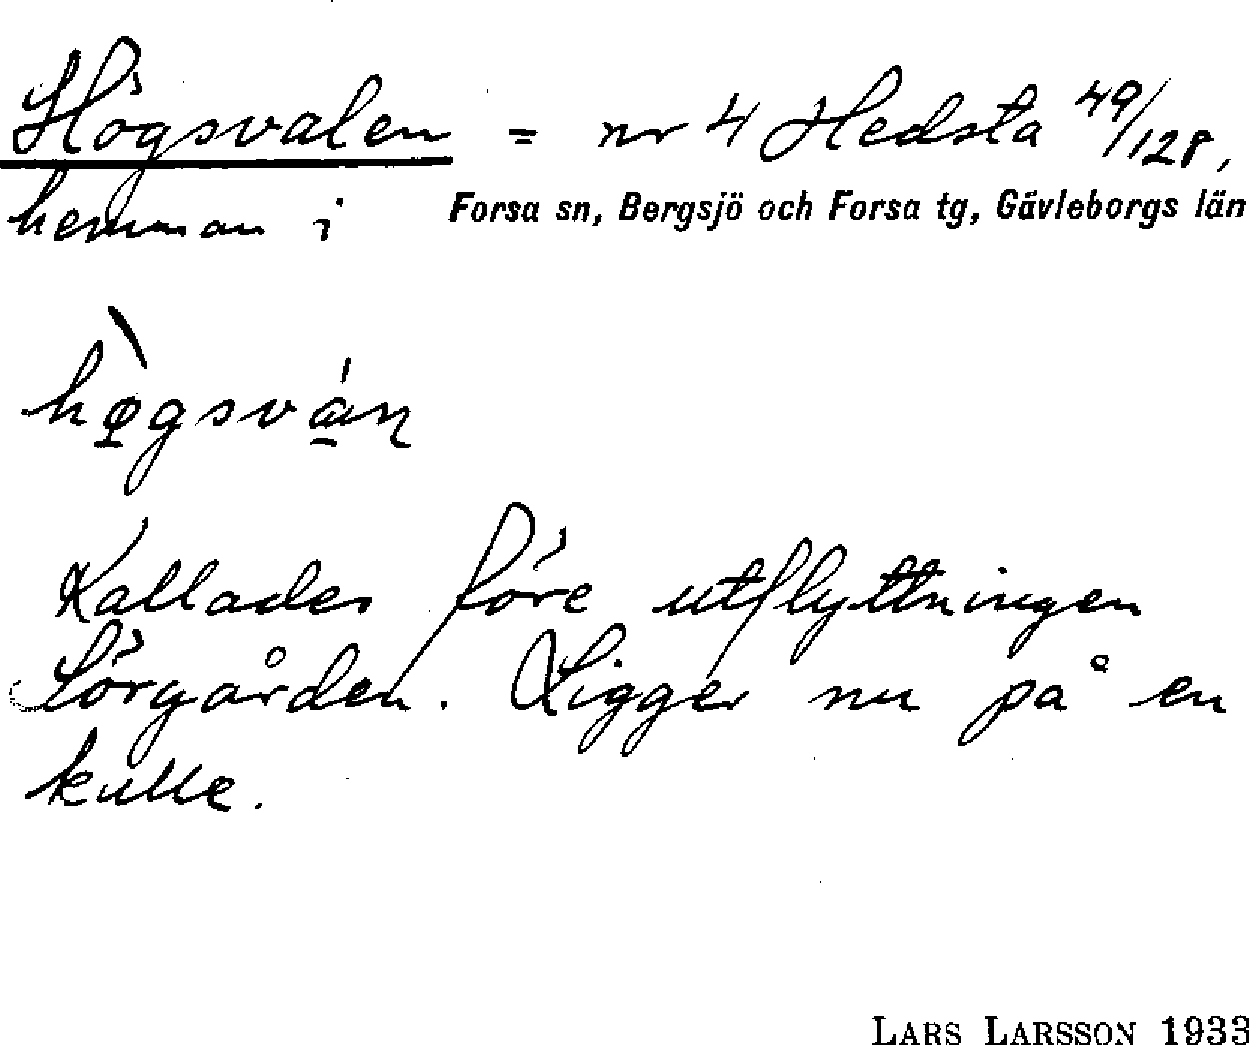 Högsvalen = nr 4 Hedsta 49/128,
hemman i Forsa sn, Bergsjö och Forsa tg, Gävleborgs län
hø̱̀gsvá̱ɳ
Kallades före utflyttningen
Sörgården. Ligger nu på en
kulle.
LARS LARSSON 1933